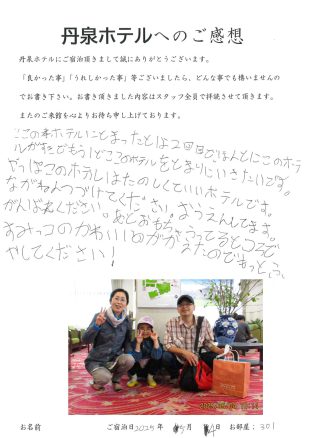 丹泉ホテルへのご感想
丹泉ホテルにご宿泊頂きまして誠にありがとうございます。
「良かった事」「うれしかった事」等ございましたら、どんな事でも構いませんの
でお書き下さい。お書き頂きました内容はスタッフ全員で拝読させて頂きます。
またのご来館を心よりお待ち申し上げております。
このホテルにとまったとは2回目でほんとにこのホテ
ルがだいで もうどこのホテルをとまりにいきたいです。
やっぱこのホテルはたのしくていいホテルです。
ながねんつづけてください。おうえんしてます。
がんばれください。あとおもちゃうってるところで
すみっコのかわいいのが ふえたのでもっと
やしてください!
お名前 ご宿泊日2025年 月 日 お部屋: 301